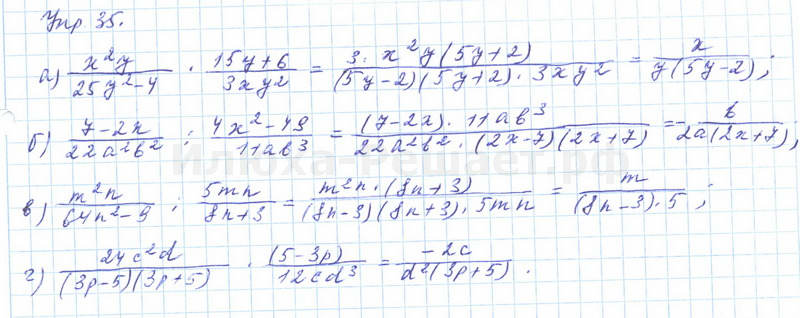 Упр 35.
а) x²y/(25y²-4) · (15y+6)/(3xy²) = (3·x²y(5y+2))/((5y-2)(5y+2)·3xy²) = x/(y(5y-2));
б) (7-2x)/(22a²b²) : (4x²-49)/(11ab³) = ((7-2x)·11ab³)/(22a²b²·(2x-7)(2x+7)) = -b/(2a(2x+7));
Илюха-Решает.рф
в) m²n/(64n²-9) : 5mn/(8n+3) = (m²n·(8n+3))/((8n-3)(8n+3)·5mn) = m/((8n-3)·5);
г) 24c²d/((3p-5)(3p+5)) · (5-3p)/(12cd³) = -2c/(d²(3p+5)).